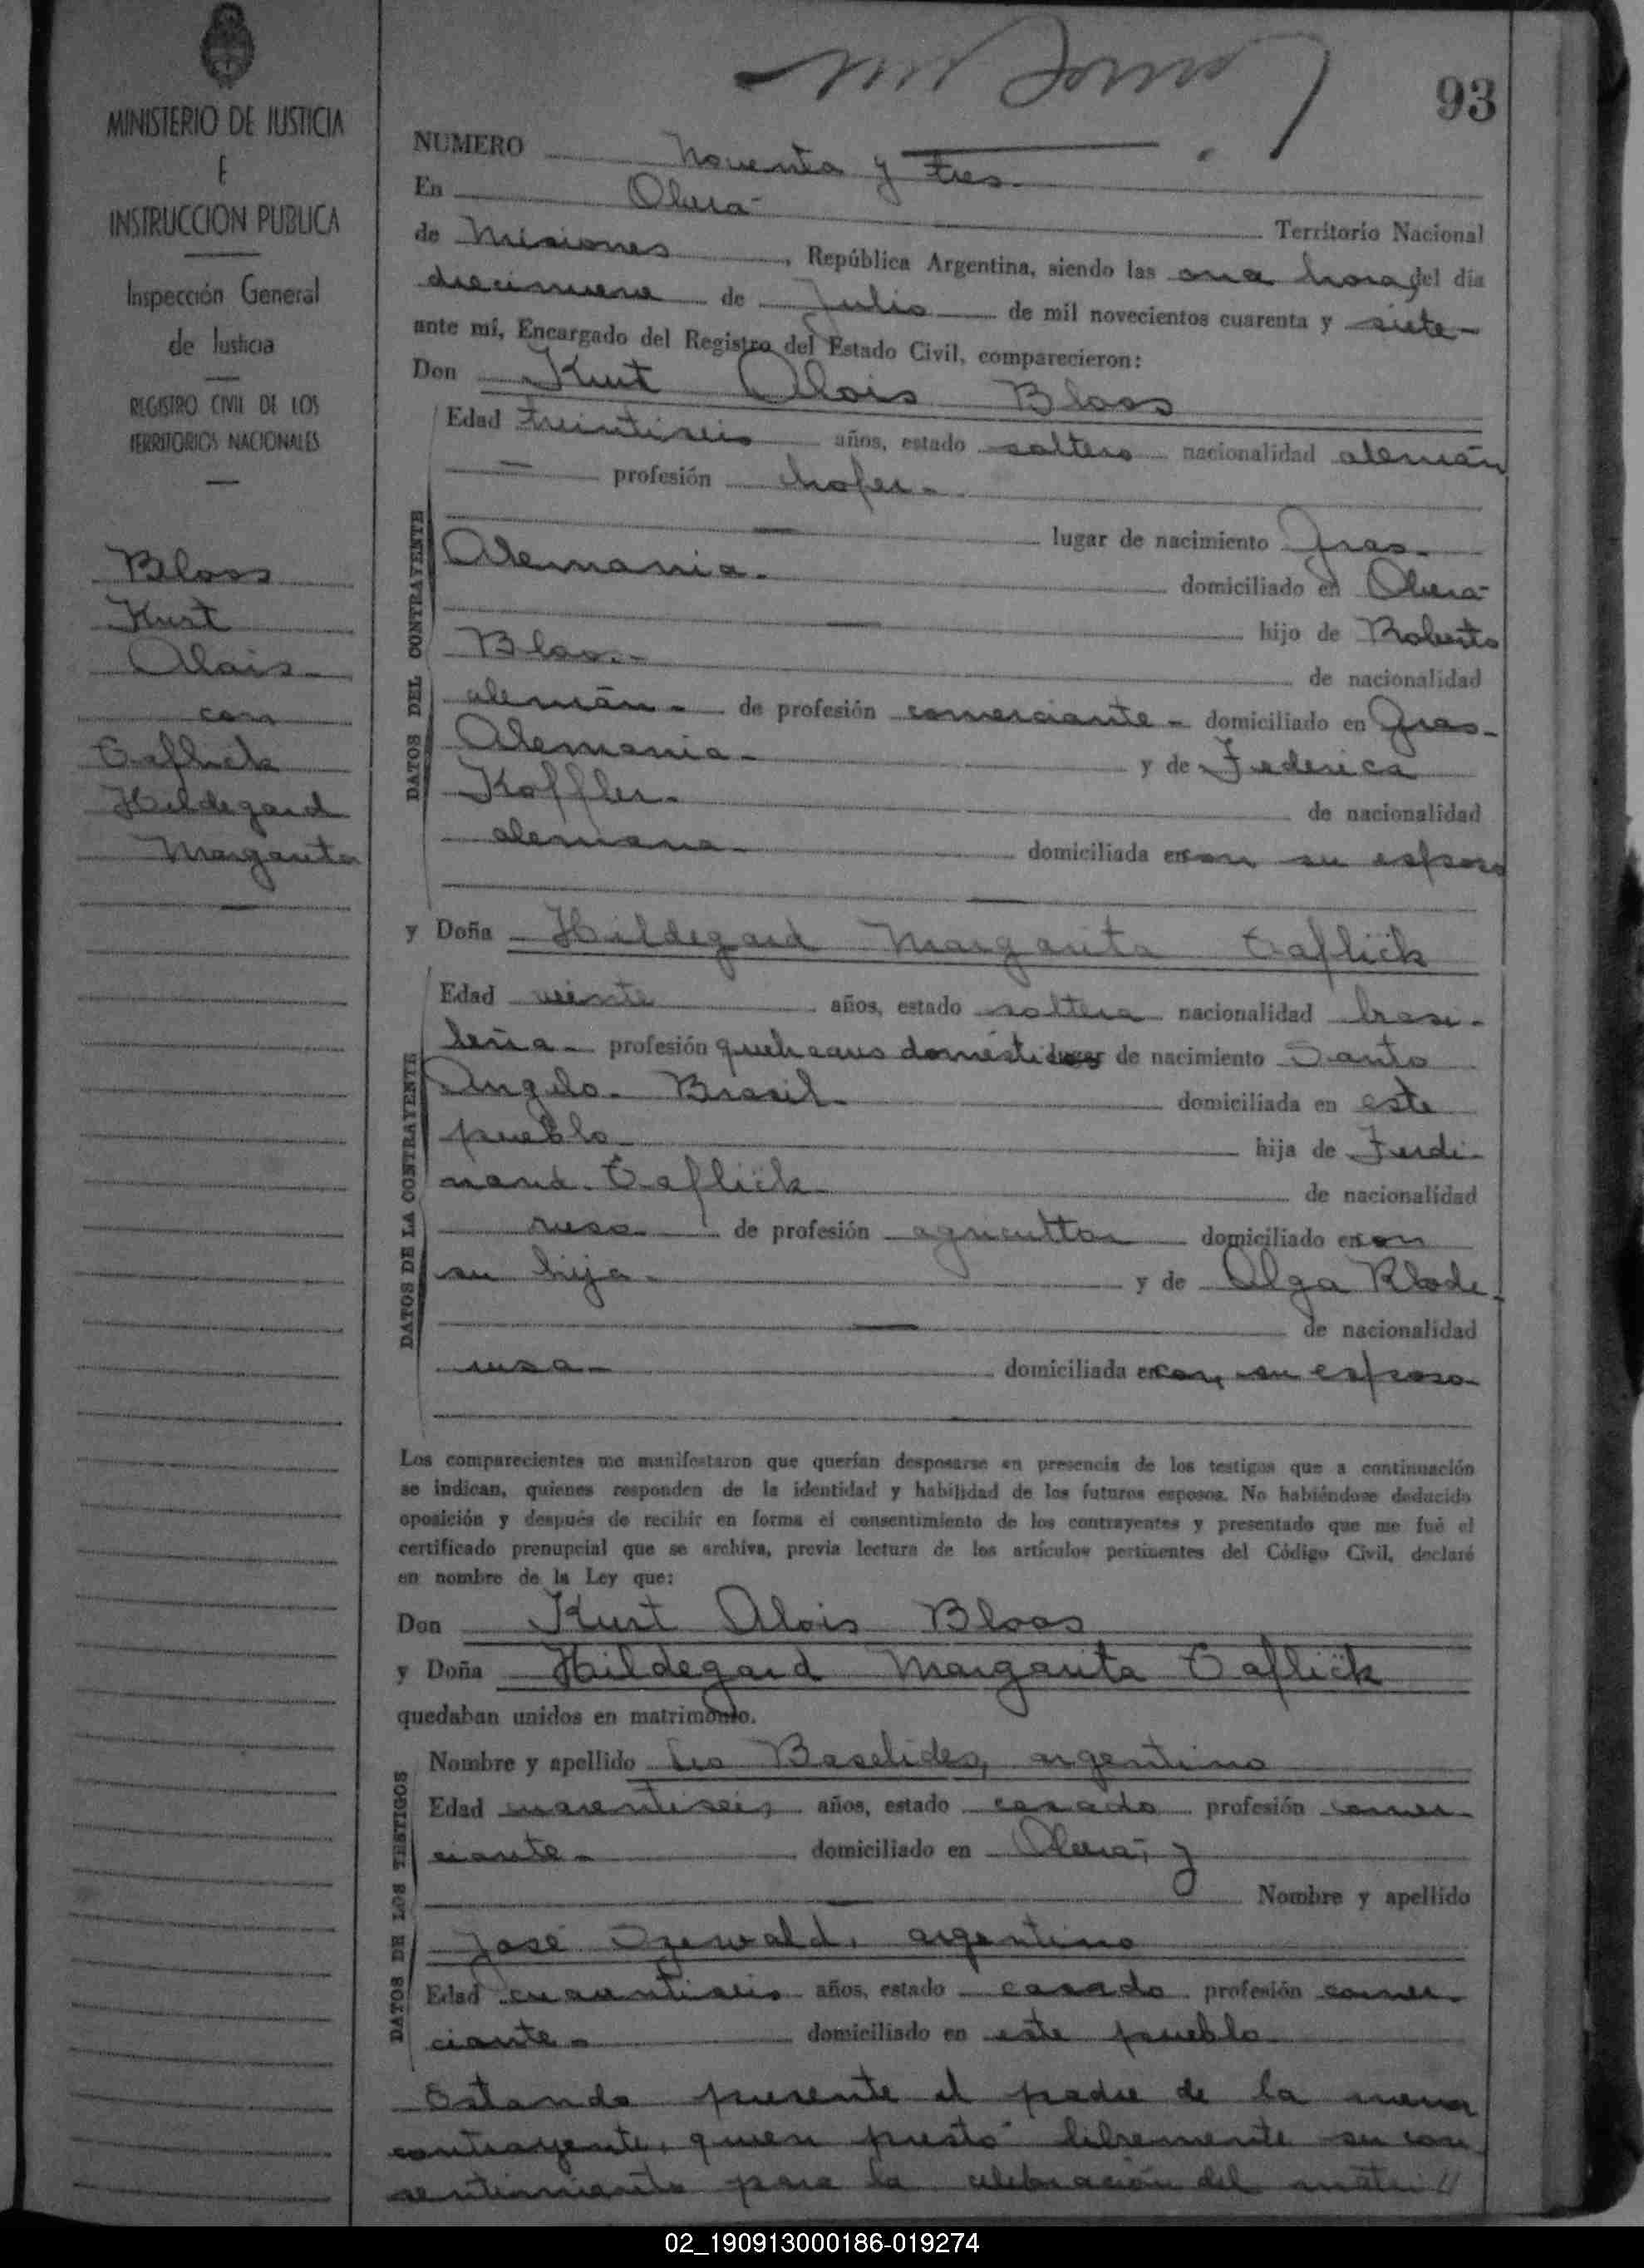 93
MINISTERIO DE JUSTICIA
E
INSTRUCCION PUBLICA
Inspección General
de Justicia
REGISTRO CIVIL DE LOS
TERRITORIOS NACIONALES
Bloss
Kurt
Alois
con
Taflick
Hildegard
Margarita
NUMERO Noventa y tres.
En Oberá Territorio Nacional
de Misiones, República Argentina, siendo las once horas del día
diecinueve de Julio de mil novecientos cuarenta y siete
ante mí, Encargado del Registro del Estado Civil, comparecieron:
Don Kurt Alois Bloss
DATOS DEL CONTRAYENTE
Edad treintiseis años, estado soltero nacionalidad alemán
profesión chofer
lugar de nacimiento Gras
Alemania. domiciliado en Oberá
hijo de Roberto
Bloss de nacionalidad
alemán de profesión comerciante domiciliado en Gras
Alemania y de Federica
Koffler de nacionalidad
alemana domiciliada en con su esposo
y Doña Hildegard Margarita Taflick
DATOS DE LA CONTRAYENTE
Edad veinte años, estado soltera nacionalidad brasi-
leña profesión quehaceres domésticos lugar de nacimiento Santo
Angelo. Brasil domiciliada en este
pueblo hija de Ferdi-
nand Taflick de nacionalidad
ruso de profesión agricultor domiciliado en con
su hija y de Olga Rhode
de nacionalidad
rusa domiciliada en con su esposo
Los comparecientes me manifestaron que querían desposarse en presencia de los testigos que a continuación
se indican, quienes responden de la identidad y habilidad de los futuros esposos. No habiéndose deducido
oposición y después de recibir en forma el consentimiento de los contrayentes y presentado que me fué el
certificado prenupcial que se archiva, previa lectura de los artículos pertinentes del Código Civil, declaré
en nombre de la Ley que:
Don Kurt Alois Bloss
y Doña Hildegard Margarita Taflick
quedaban unidos en matrimonio.
DATOS DE LOS TESTIGOS
Nombre y apellido Leo Baselides, argentino
Edad cuarentiseis años, estado casado profesión comer
ciante domiciliado en Oberá, y
Nombre y apellido
José Ozewald, argentino
Edad cuarentiseis años, estado casado profesión comer
ciante domiciliado en este pueblo
Estando presente el padre de la menor
contrayente, quien prestó libremente su con
sentimiento para la celebración del matri//
02_190913000186-019274